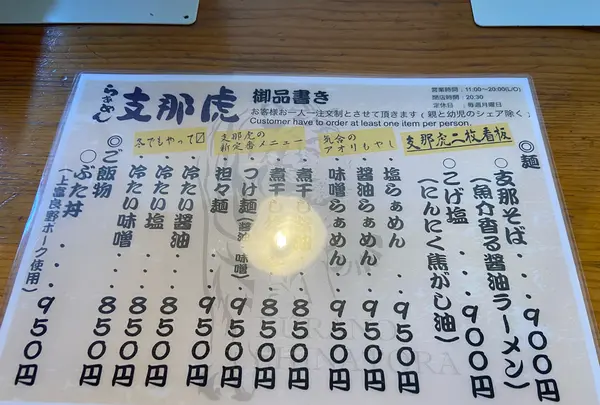 らぁめん
支那虎
御品書き
営業時間：11:00～20:00(L/O)
閉店時間：20:30
定休日：毎週月曜日
お客様お一人一注文制とさせて頂きます（親と幼児のシェア除く）
Customer have to order at least one item per person.
支那虎二枚看板
気合のアオリもやし
支那虎の
新定番メニュー
冬でもやって〼
◎麺
○支那そば・・・900円
（魚介香る醤油ラーメン）
○こげ塩・・・900円
（にんにく焦がし油）
塩らぁめん・・950円
醤油らぁめん・・950円
味噌らぁめん・・950円
煮干し
煮干し
つけ麺（醤油・味噌）
担々麺
冷たい醤油・・850円
冷たい塩・・・850円
冷たい味噌・・850円
◎ご飯物
○ぶた丼・・・950円
（上富良野ポーク使用）
FURANO
SHINATORA